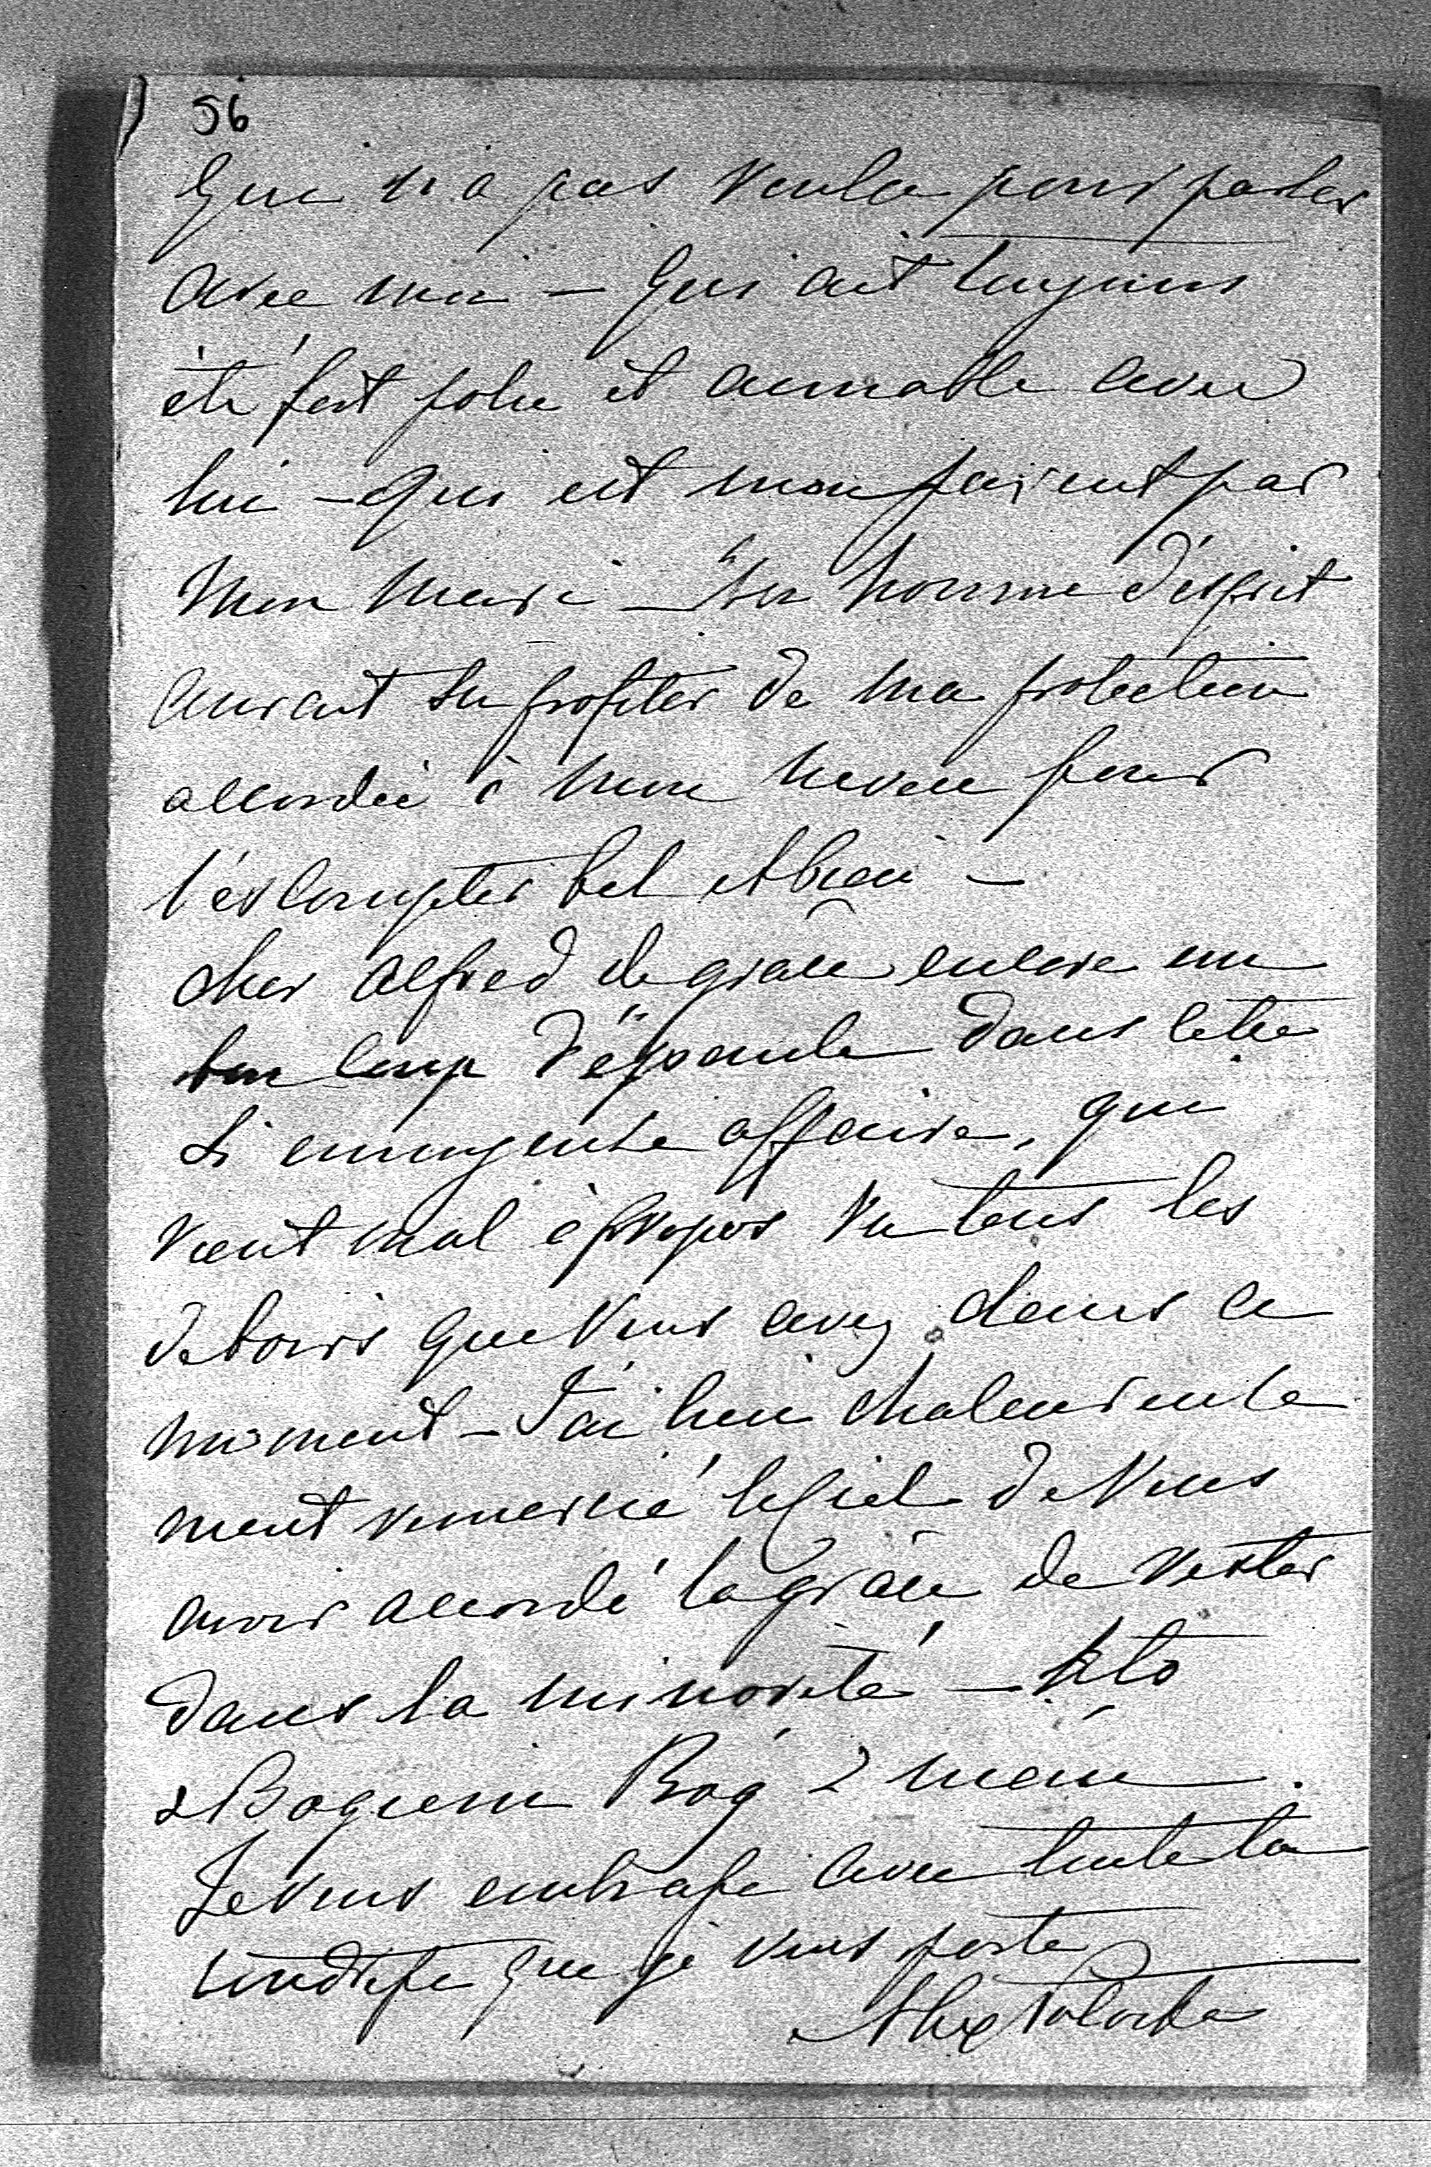 56
qui n'a pas voulu pourparler
avec moi – qui ait toujours
été fort polie et aimable avec
lui – qui est mon parent par
mon mari – Un homme d'ésprit
aurait su profiter de ma protection
accordée à mon neveu pour
l'éscompter bel et bien –
cher Alfred de grâce encore un
bon coup d'épaule dans cette
si ennuyeuse affaire, qui
vient mal à propos vu tous les
deboirs que vous avez dans ce
moment – J'ai bien chaleureuse
ment remercié le Ciel de vous
avoir accordé la grâce de rester
dans la minorité – Kto
z Bogiem Bóg z niem.
Je vous embrasse avec toute la
tendresse que je vous porte
Alix Potocka